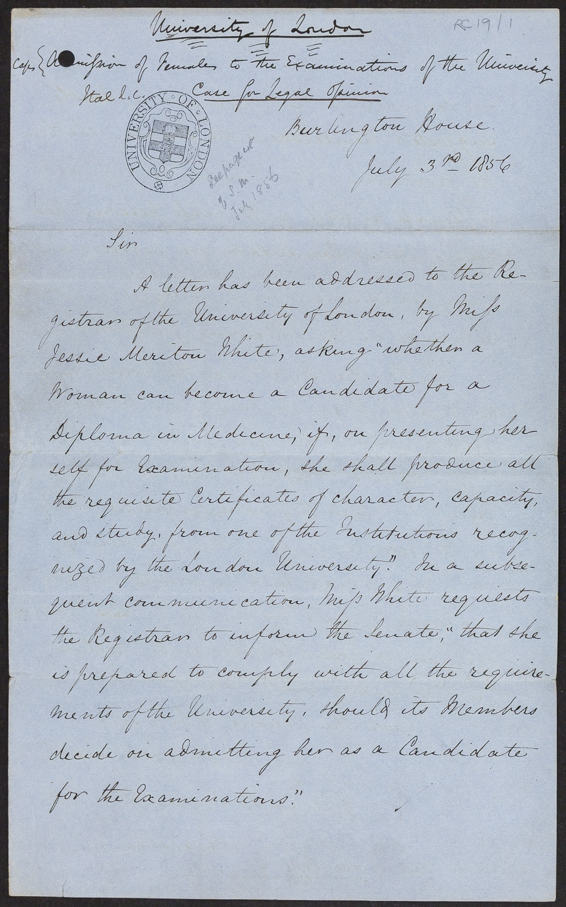 University of London
RC 19/1
Caps { Admission of Females to the Examinations of the University
Ital l.c. Case for Legal Opinion
UNIVERSITY OF LONDON
Burlington House.
July 3rd 1856
July 1856
Sir
A letter has been addressed to the Re-
gistrar of the University of London, by Miss
Jessie Meriton White, asking "whether a
Woman can become a Candidate for a
Diploma in Medicine, if, on presenting her
self for Examination, she shall produce all
the requisite Certificates of character, capacity,
and study, from one of the Institutions recog-
nized by the London University." In a subse-
quent communication, Miss White requests
the Registrar to inform the Senate, "that she
is prepared to comply with all the require-
ments of the University, should its Members
decide on admitting her as a Candidate
for the Examinations."